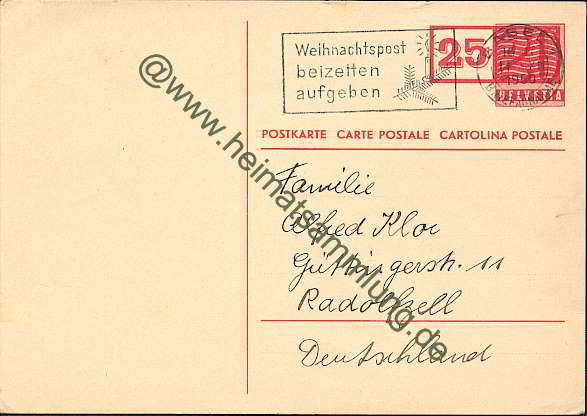 Weihnachtspost
beizeiten
aufgeben
25
HELVETIA
POSTKARTE CARTE POSTALE CARTOLINA POSTALE
Familie
Alfred Kloc
Güttingerstr. 11
Radolfzell
Deutschland
@www.heimatsammlung.de